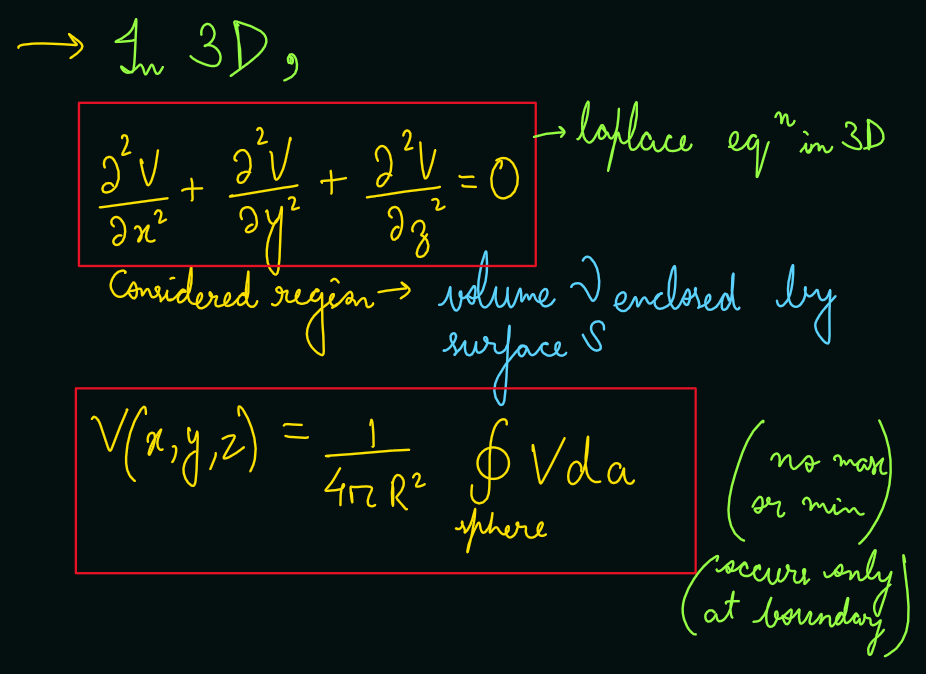 → In 3D,
∂²V/∂x² + ∂²V/∂y² + ∂²V/∂z² = 0 → laplace eqⁿ in 3D
Considered region → volume V enclosed by
surface S
V(x,y,z) = 1/4πR² ∮ V da
sphere
(no max
or min)
(occurs only
at boundary)